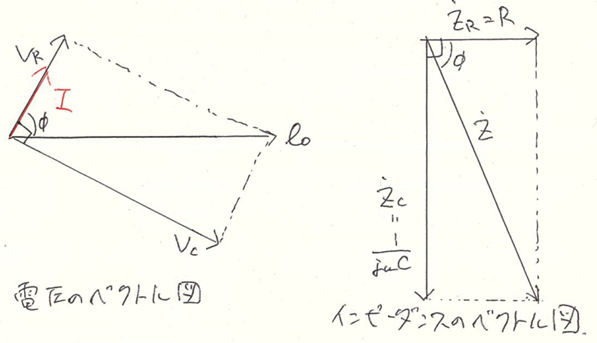 V_R
I
φ
e₀
V_C
電圧のベクトル図
Ż_R = R
φ
Ż
Ż_C
=
1
jωC
インピーダンスのベクトル図